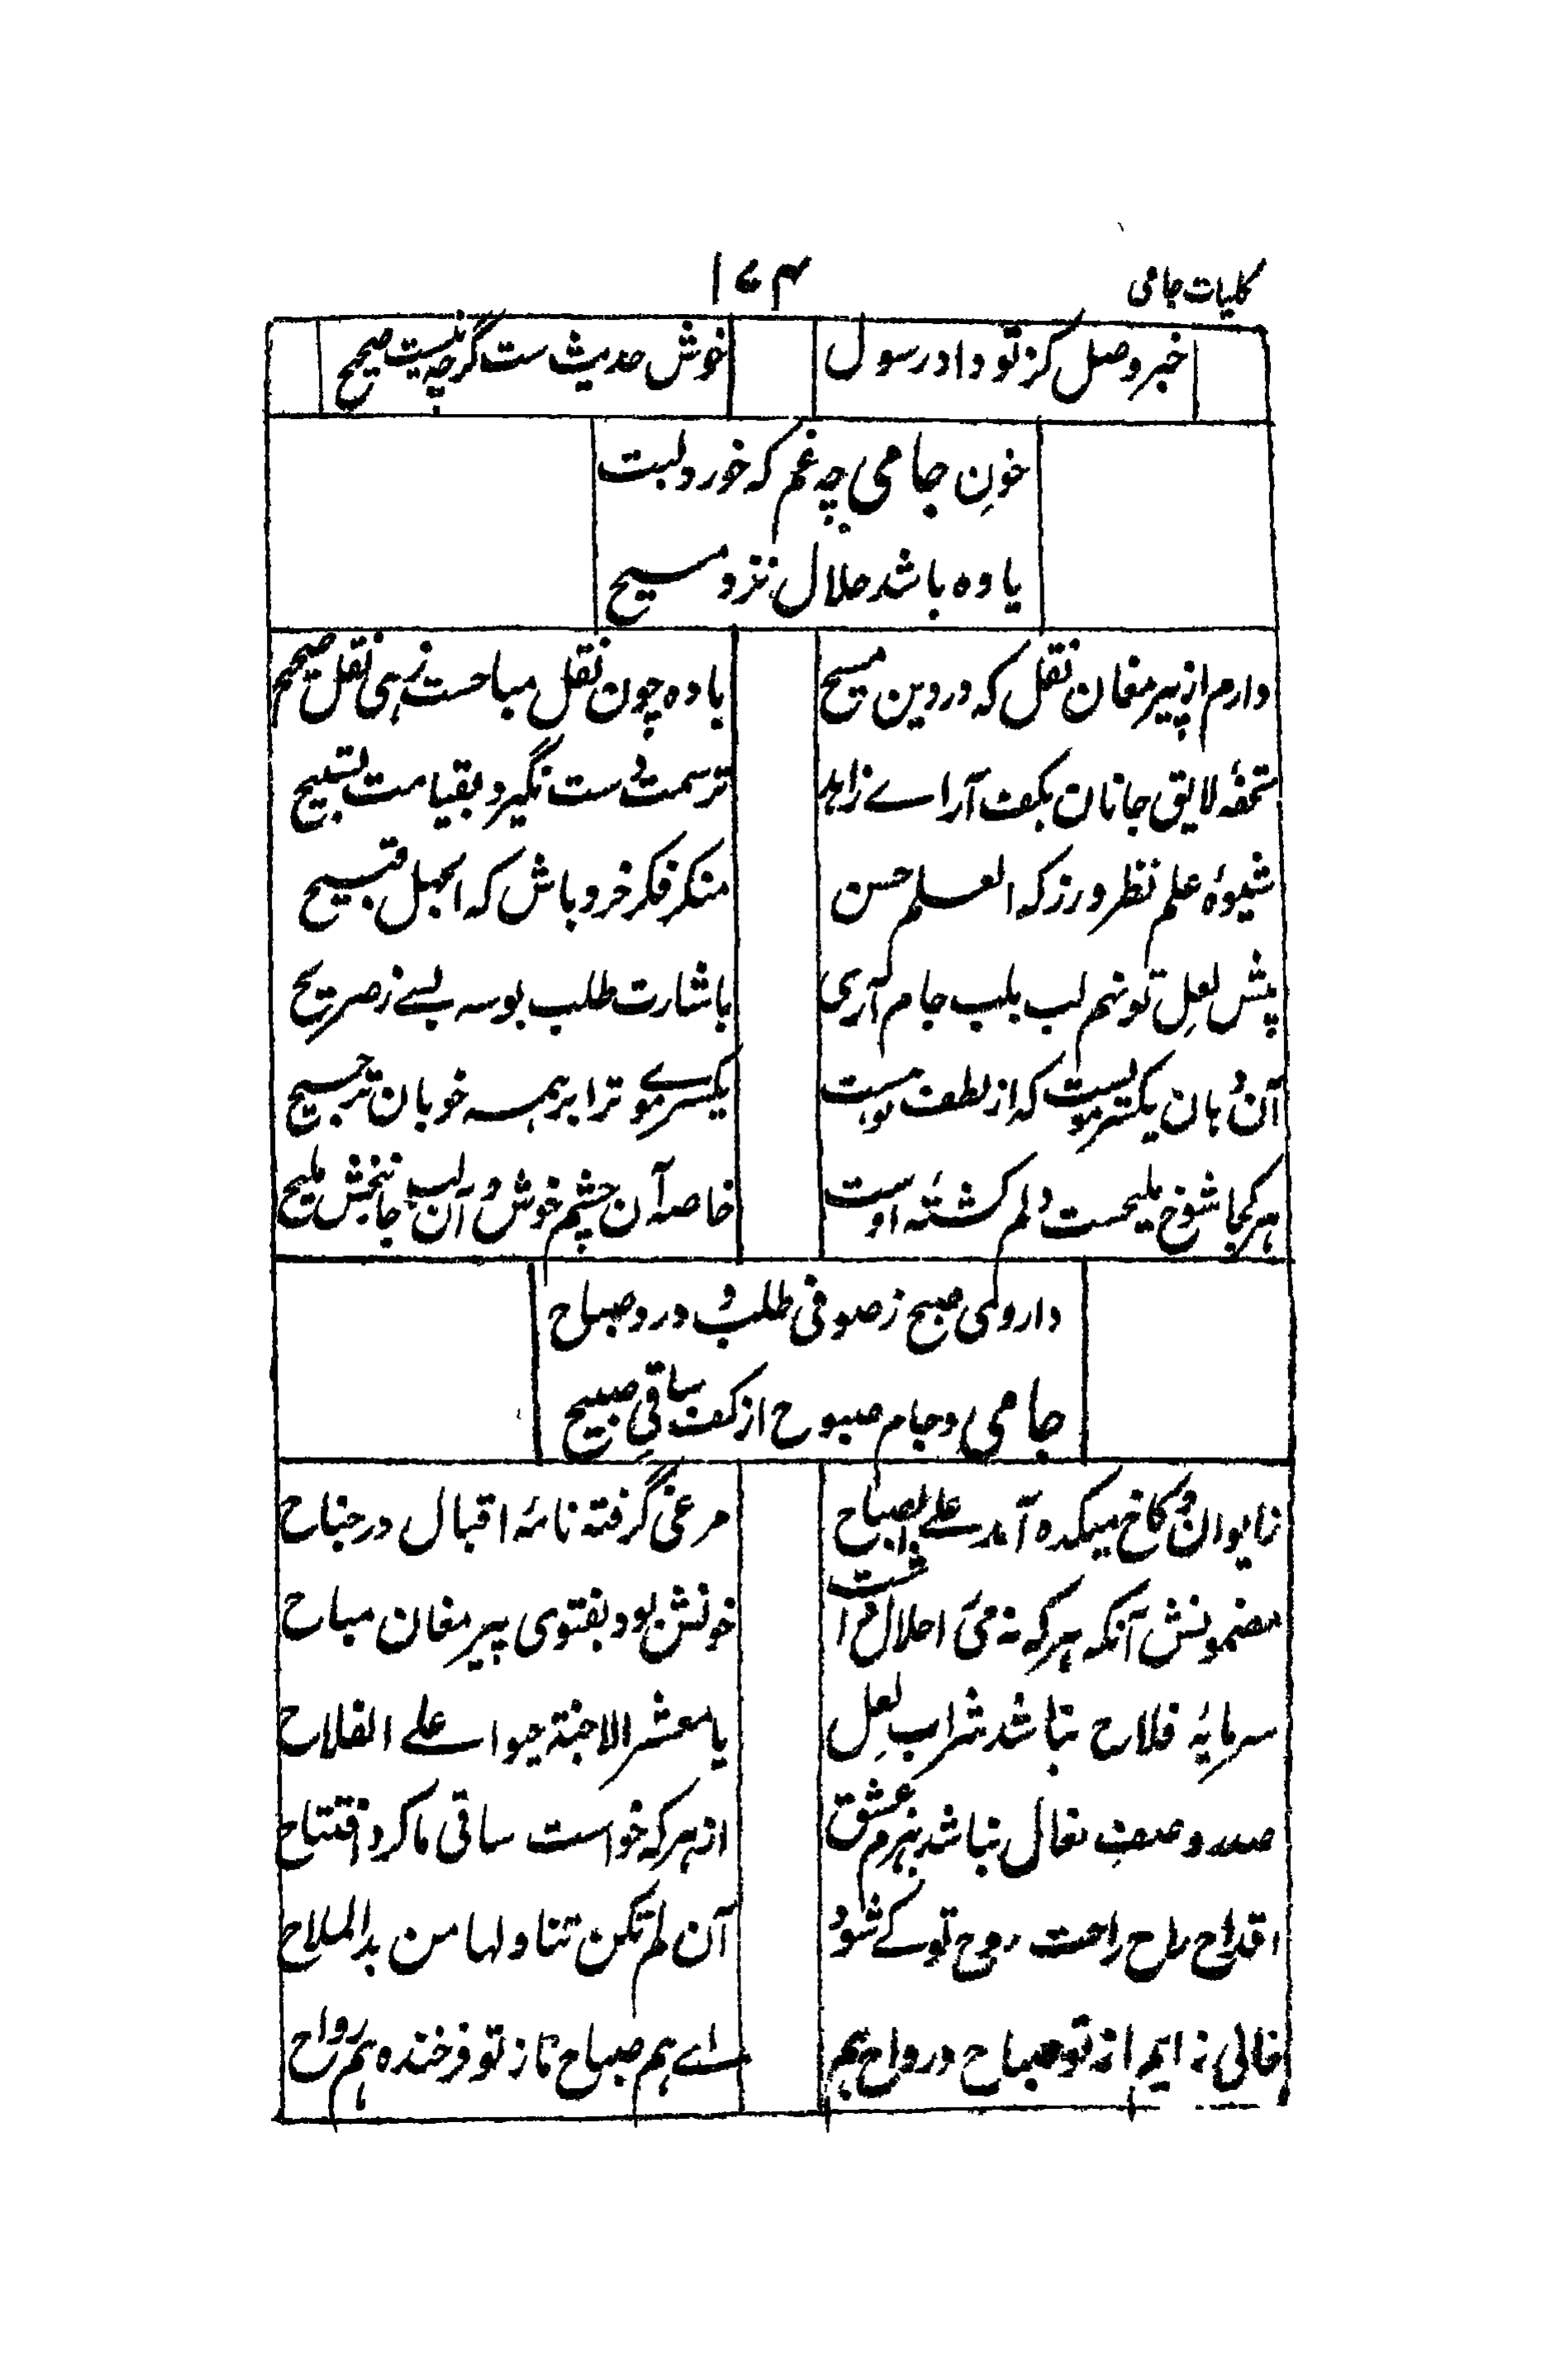 کلیات جامی
۱۷۴
خبر وصل کز تو داد رسول
خوش حدیث ست گرچه نیست صحیح
خونِ جامی چه غم که خورد لبت
باده باشد حلال نزد مسیح
دارم از پیر مغان نقل که در دین مسیح
باده چون نقل مباحست زهی نقل صحیح
تحفهٔ لایق جانان بکف آر اے زاهد
ترسمت دست نگیرد بقیامت تسبیح
شیوهٔ علم نظر ورز که العلم حسن
منکر فکر خرد باش که الجهل قبیح
پیش لعلِ تو نهم لب بلب جام آری
باشارت طلب بوسه بسے ز صریح
آن دهان یکسر مویست که از لطف تو هست
یکسر موے ترا بر همه خوبان ترجیح
هر کجا شوخ ملیحست دلم کشتهٔ اوست
خاصه آن چشم خوش و آن لب جانبخش ملیح
داروی صبح ز صوفی طلب و درد صباح
جامی و جام صبوح از کف ساقیِ صبیح
ز ایوان و کاخ میکده آمد علے الصباح
مرغی گرفته نامهٔ اقبال در جناح
مضمونش آنکه هر که نه می را حلال داشت
خونش بود بفتوی پیر مغان مباح
سرمایهٔ فلاح نباشد شراب لعل
یا معشر الاجنة حیوا علے الفلاح
صدر و صفِ نعال نباشد ببزم عشق
از هر که خواست ساقی ما کرد افتتاح
اقداح راح راحت روح تو کے شود
آن لم تکن تناولها من ید الملاح
خالی نه ایم از تو صباح و رواح هم
اے هم صباح ما ز تو فرخنده هم رواح